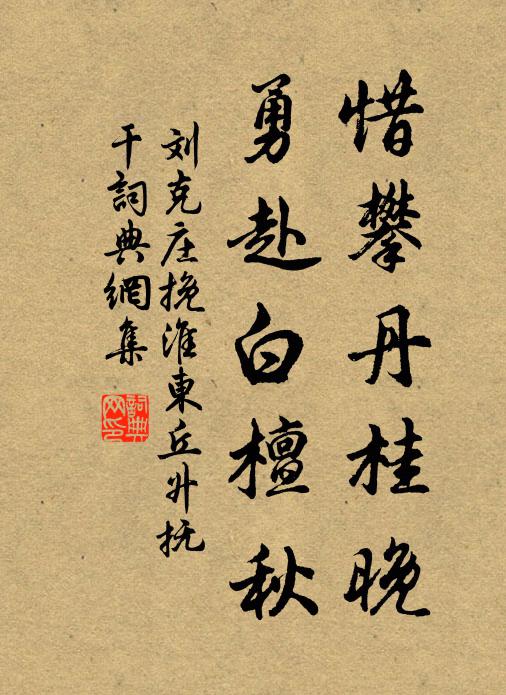 惜攀丹桂晚
勇赴白檀秋
刘克庄挽淮東丘升抚
干詞典網集
詞典网印